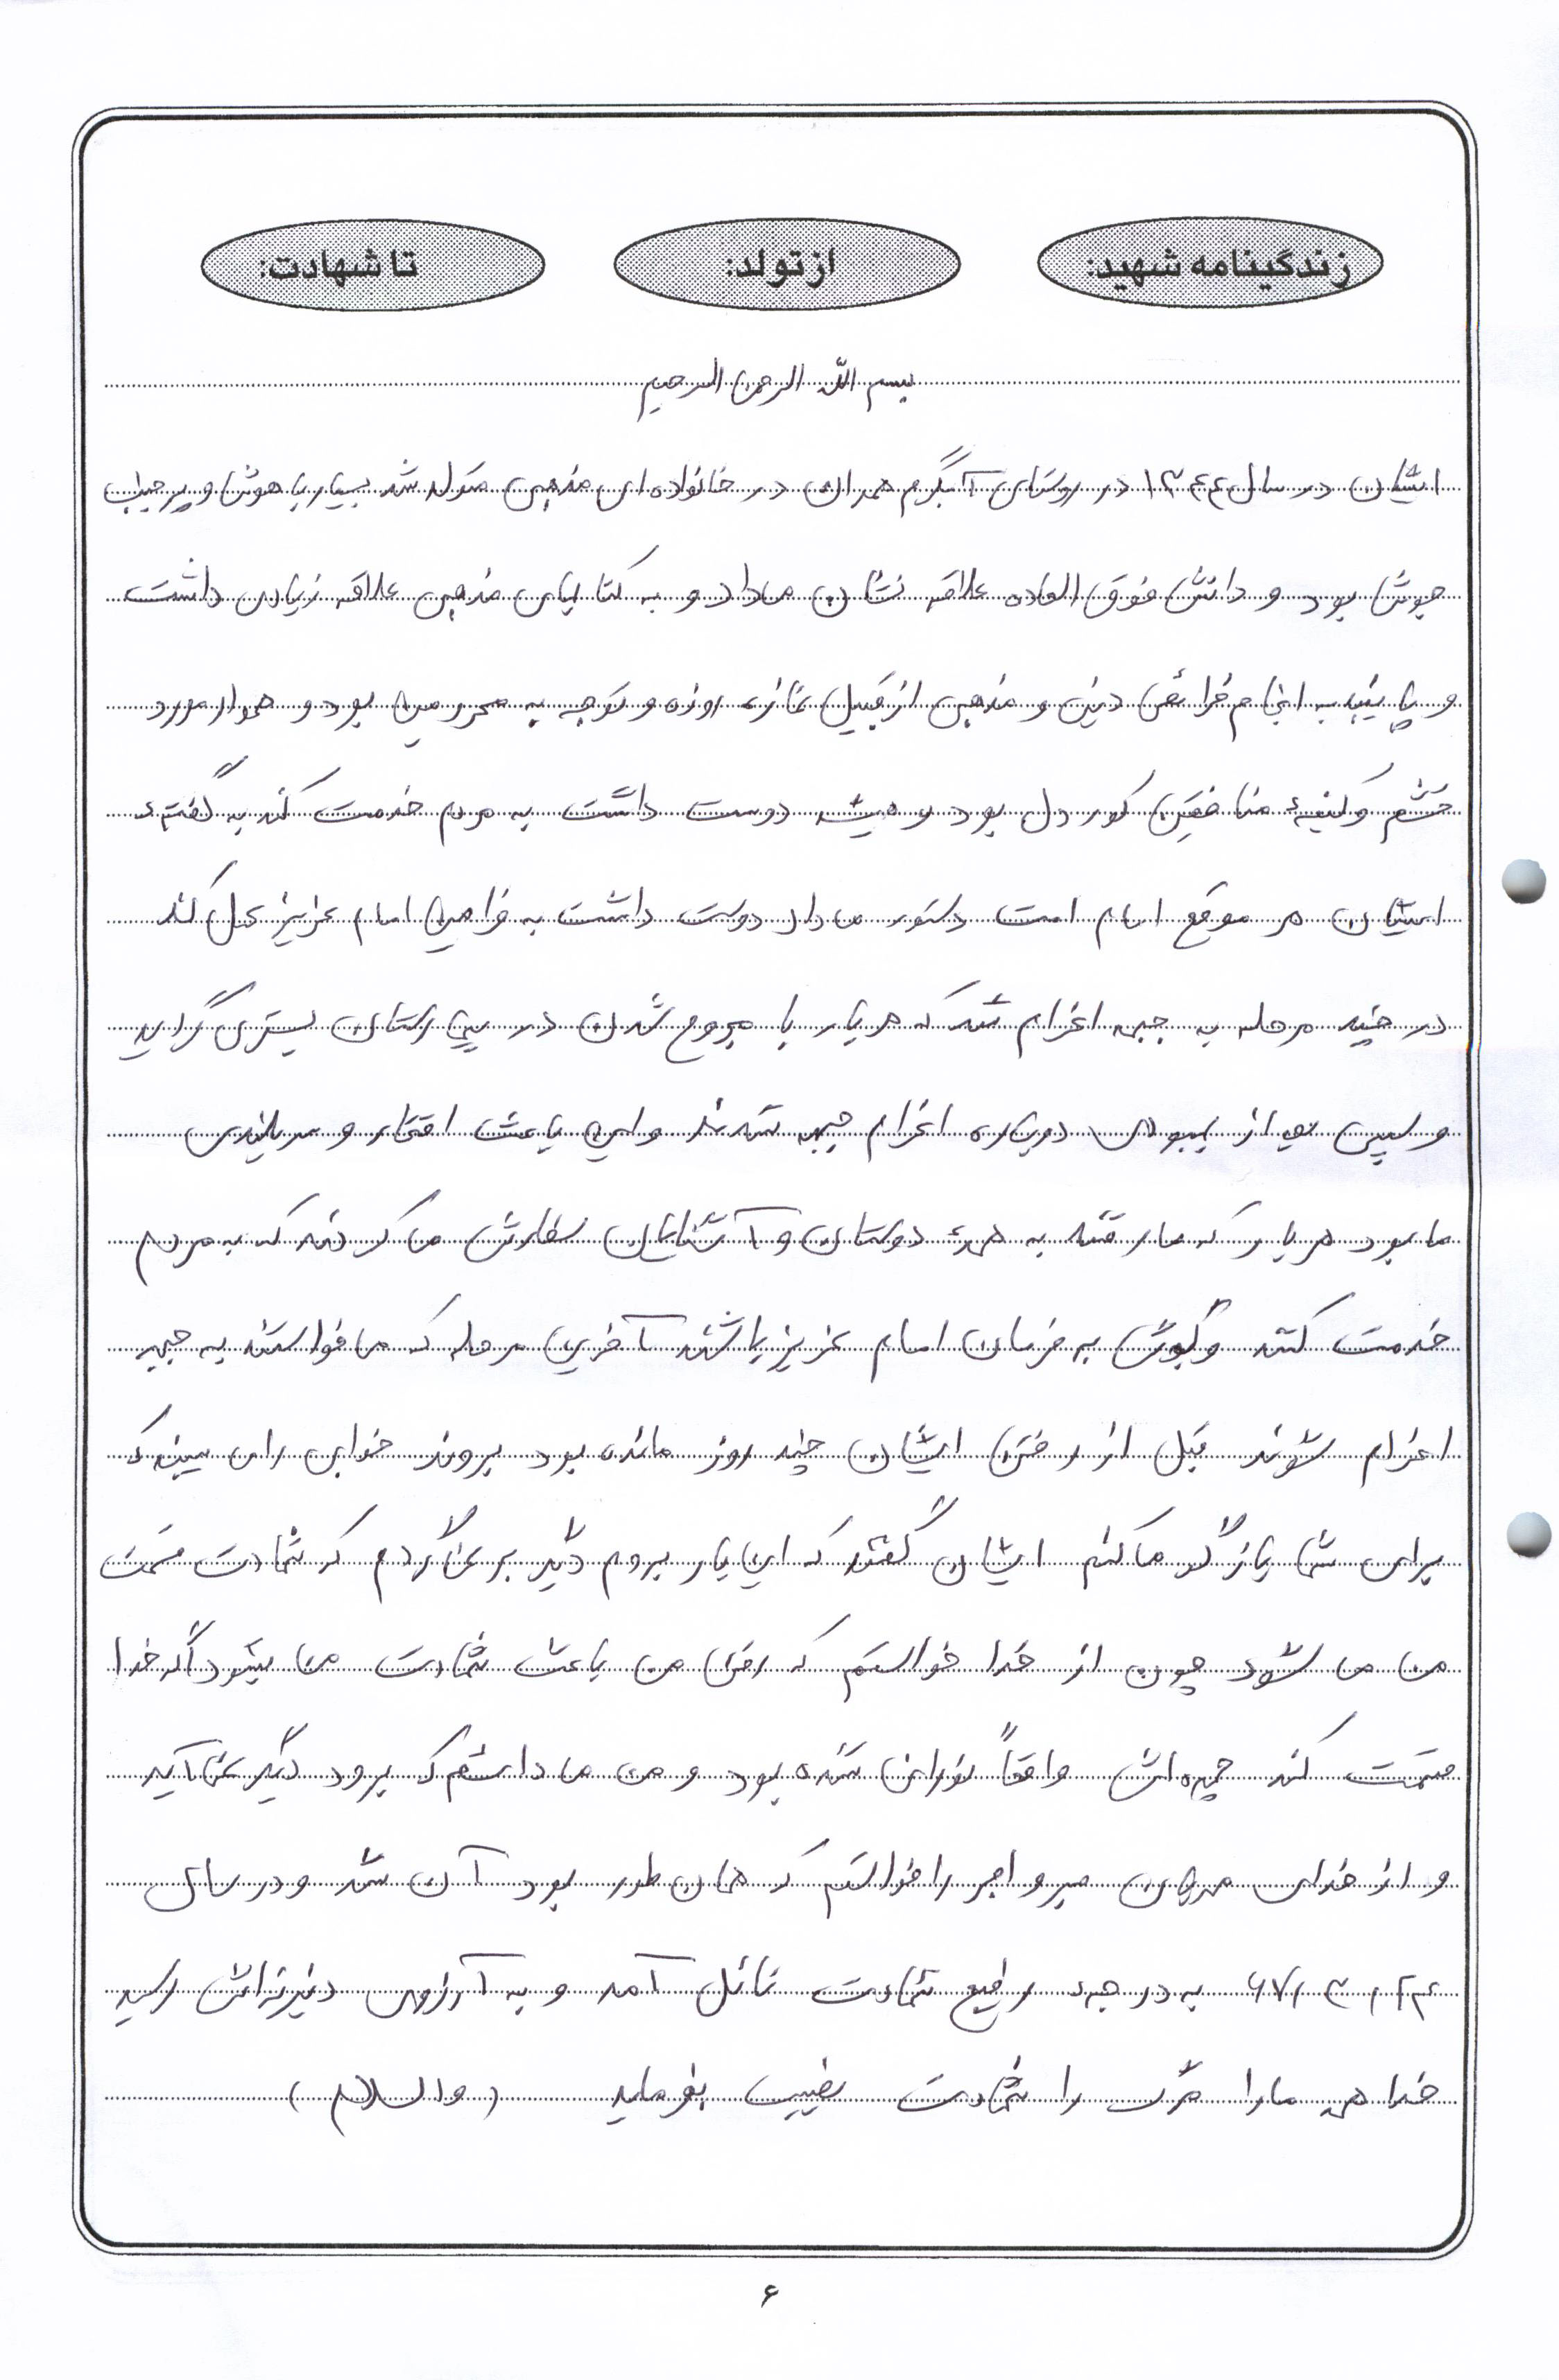 زندگینامه شهید: از تولد: تا شهادت:
بسم الله الرحمن الرحیم
ایشان در سال ۱۳۴۴ در روستای آبگرم همدان در خانواده ای مذهبی متولد شد بسیار با هوش و پر جنب
جوش بود و دانش فوق العاده علاقه نشان می داد و به کتابهای مذهبی علاقه زیادی داشت
و پایبند به انجام فرائض دینی و مذهبی از قبیل نماز، روزه و توجه به محرومین بود و هموار مورد
خشم و کینهٔ منافقین کور دل بود و همیشه دوست داشت به مردم خدمت کند به گفتهء
ایشان هر موقع امام امت دستور می داد دوست داشت به فرامین امام عزیز عمل کند
در چند مرحله به جبهه اعزام شد که هر بار با مجروح شدن در بیمارستان بستری گردید
و سپس بعد از بهبودی دوباره اعزام جبهه شدند و این باعث افتخار و سربلندی
ما بود هر بار که ما رفتند به همهء دوستان و آشنایان سفارش می کردند که به مردم
خدمت کنند و گوش به فرمان امام عزیز باشند آخرین مرحله که می خواستند به جبهه
اعزام شوند قبل از رفتن ایشان چند روز مانده بود بروند خوابی را می بیند که
برای شما بازگو می کنم ایشان گفتند که این بار بروم دیگر بر نمی گردم که شهادت قسمت
من می شود چون از خدا خواستم که رفتن من باعث شهادت من بشود اگر خدا
قسمت کند چهره اش واقعاً نورانی شده بود و من می دانستم که برود دیگر نمی آید
و از خدای مهربان صبر و اجر را خواستم که همان طور بود آن شد و در سال
۶۷/۳/۲۴ به درجهء رفیع شهادت نائل آمد و به آرزوی دیرینه اش رسید
خدا همه ما را مرگ را شهادت نصیب بفرماید (والسلام)
۶